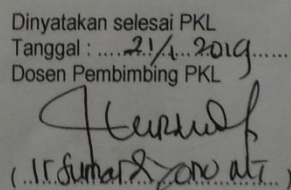 Dinyatakan selesai PKL
Tanggal : ..... 21/1. 2019......
Dosen Pembimbing PKL
( Ir Sumardiyono MT )